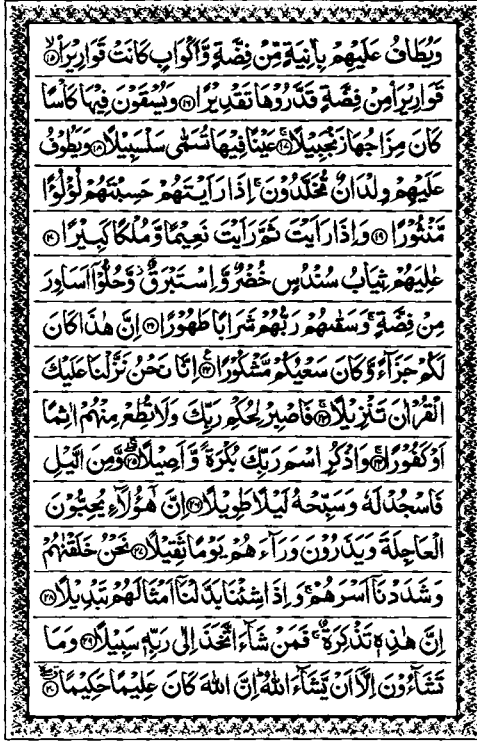 وَيُطَافُ عَلَيْهِمْ بِاٰنِيَةٍ مِّنْ فِضَّةٍ وَّاَكْوَابٍ كَانَتْ قَوَارِيْرَا۟ ۙ﴿۱۵﴾
قَوَارِيْرَا۟ مِنْ فِضَّةٍ قَدَّرُوْهَا تَقْدِيْرًا ﴿۱۶﴾ وَيُسْقَوْنَ فِيْهَا كَاْسًا
كَانَ مِزَاجُهَا زَنْجَبِيْلًا ۚ﴿۱۷﴾ عَيْنًا فِيْهَا تُسَمّٰى سَلْسَبِيْلًا ﴿۱۸﴾ وَيَطُوْفُ
عَلَيْهِمْ وِلْدَانٌ مُّخَلَّدُوْنَ ۚ اِذَا رَاَيْتَهُمْ حَسِبْتَهُمْ لُؤْلُؤًا
مَّنْثُوْرًا ﴿۱۹﴾ وَاِذَا رَاَيْتَ ثَمَّ رَاَيْتَ نَعِيْمًا وَّمُلْكًا كَبِيْرًا ﴿۲۰﴾
عٰلِيَهُمْ ثِيَابُ سُنْدُسٍ خُضْرٌ وَّاِسْتَبْرَقٌ ۫ وَّحُلُّوْٓا اَسَاوِرَ
مِنْ فِضَّةٍ ۚ وَسَقٰىهُمْ رَبُّهُمْ شَرَابًا طَهُوْرًا ﴿۲۱﴾ اِنَّ هٰذَا كَانَ
لَكُمْ جَزَآءً وَّكَانَ سَعْيُكُمْ مَّشْكُوْرًا ﴿۲۲﴾ اِنَّا نَحْنُ نَزَّلْنَا عَلَيْكَ
الْقُرْاٰنَ تَنْزِيْلًا ۚ﴿۲۳﴾ فَاصْبِرْ لِحُكْمِ رَبِّكَ وَلَا تُطِعْ مِنْهُمْ اٰثِمًا
اَوْ كَفُوْرًا ۚ﴿۲۴﴾ وَاذْكُرِ اسْمَ رَبِّكَ بُكْرَةً وَّاَصِيْلًا ۖ﴿۲۵﴾ وَّمِنَ الَّيْلِ
فَاسْجُدْ لَهٗ وَسَبِّحْهُ لَيْلًا طَوِيْلًا ﴿۲۶﴾ اِنَّ هٰٓؤُلَآءِ يُحِبُّوْنَ
الْعَاجِلَةَ وَيَذَرُوْنَ وَرَآءَهُمْ يَوْمًا ثَقِيْلًا ﴿۲۷﴾ نَحْنُ خَلَقْنٰهُمْ
وَشَدَدْنَآ اَسْرَهُمْ ۚ وَاِذَا شِئْنَا بَدَّلْنَآ اَمْثَالَهُمْ تَبْدِيْلًا ﴿۲۸﴾
اِنَّ هٰذِهٖ تَذْكِرَةٌ ۚ فَمَنْ شَآءَ اتَّخَذَ اِلٰى رَبِّهٖ سَبِيْلًا ﴿۲۹﴾ وَمَا
تَشَآءُوْنَ اِلَّآ اَنْ يَّشَآءَ اللّٰهُ ؕ اِنَّ اللّٰهَ كَانَ عَلِيْمًا حَكِيْمًا ۖ﴿۳۰﴾